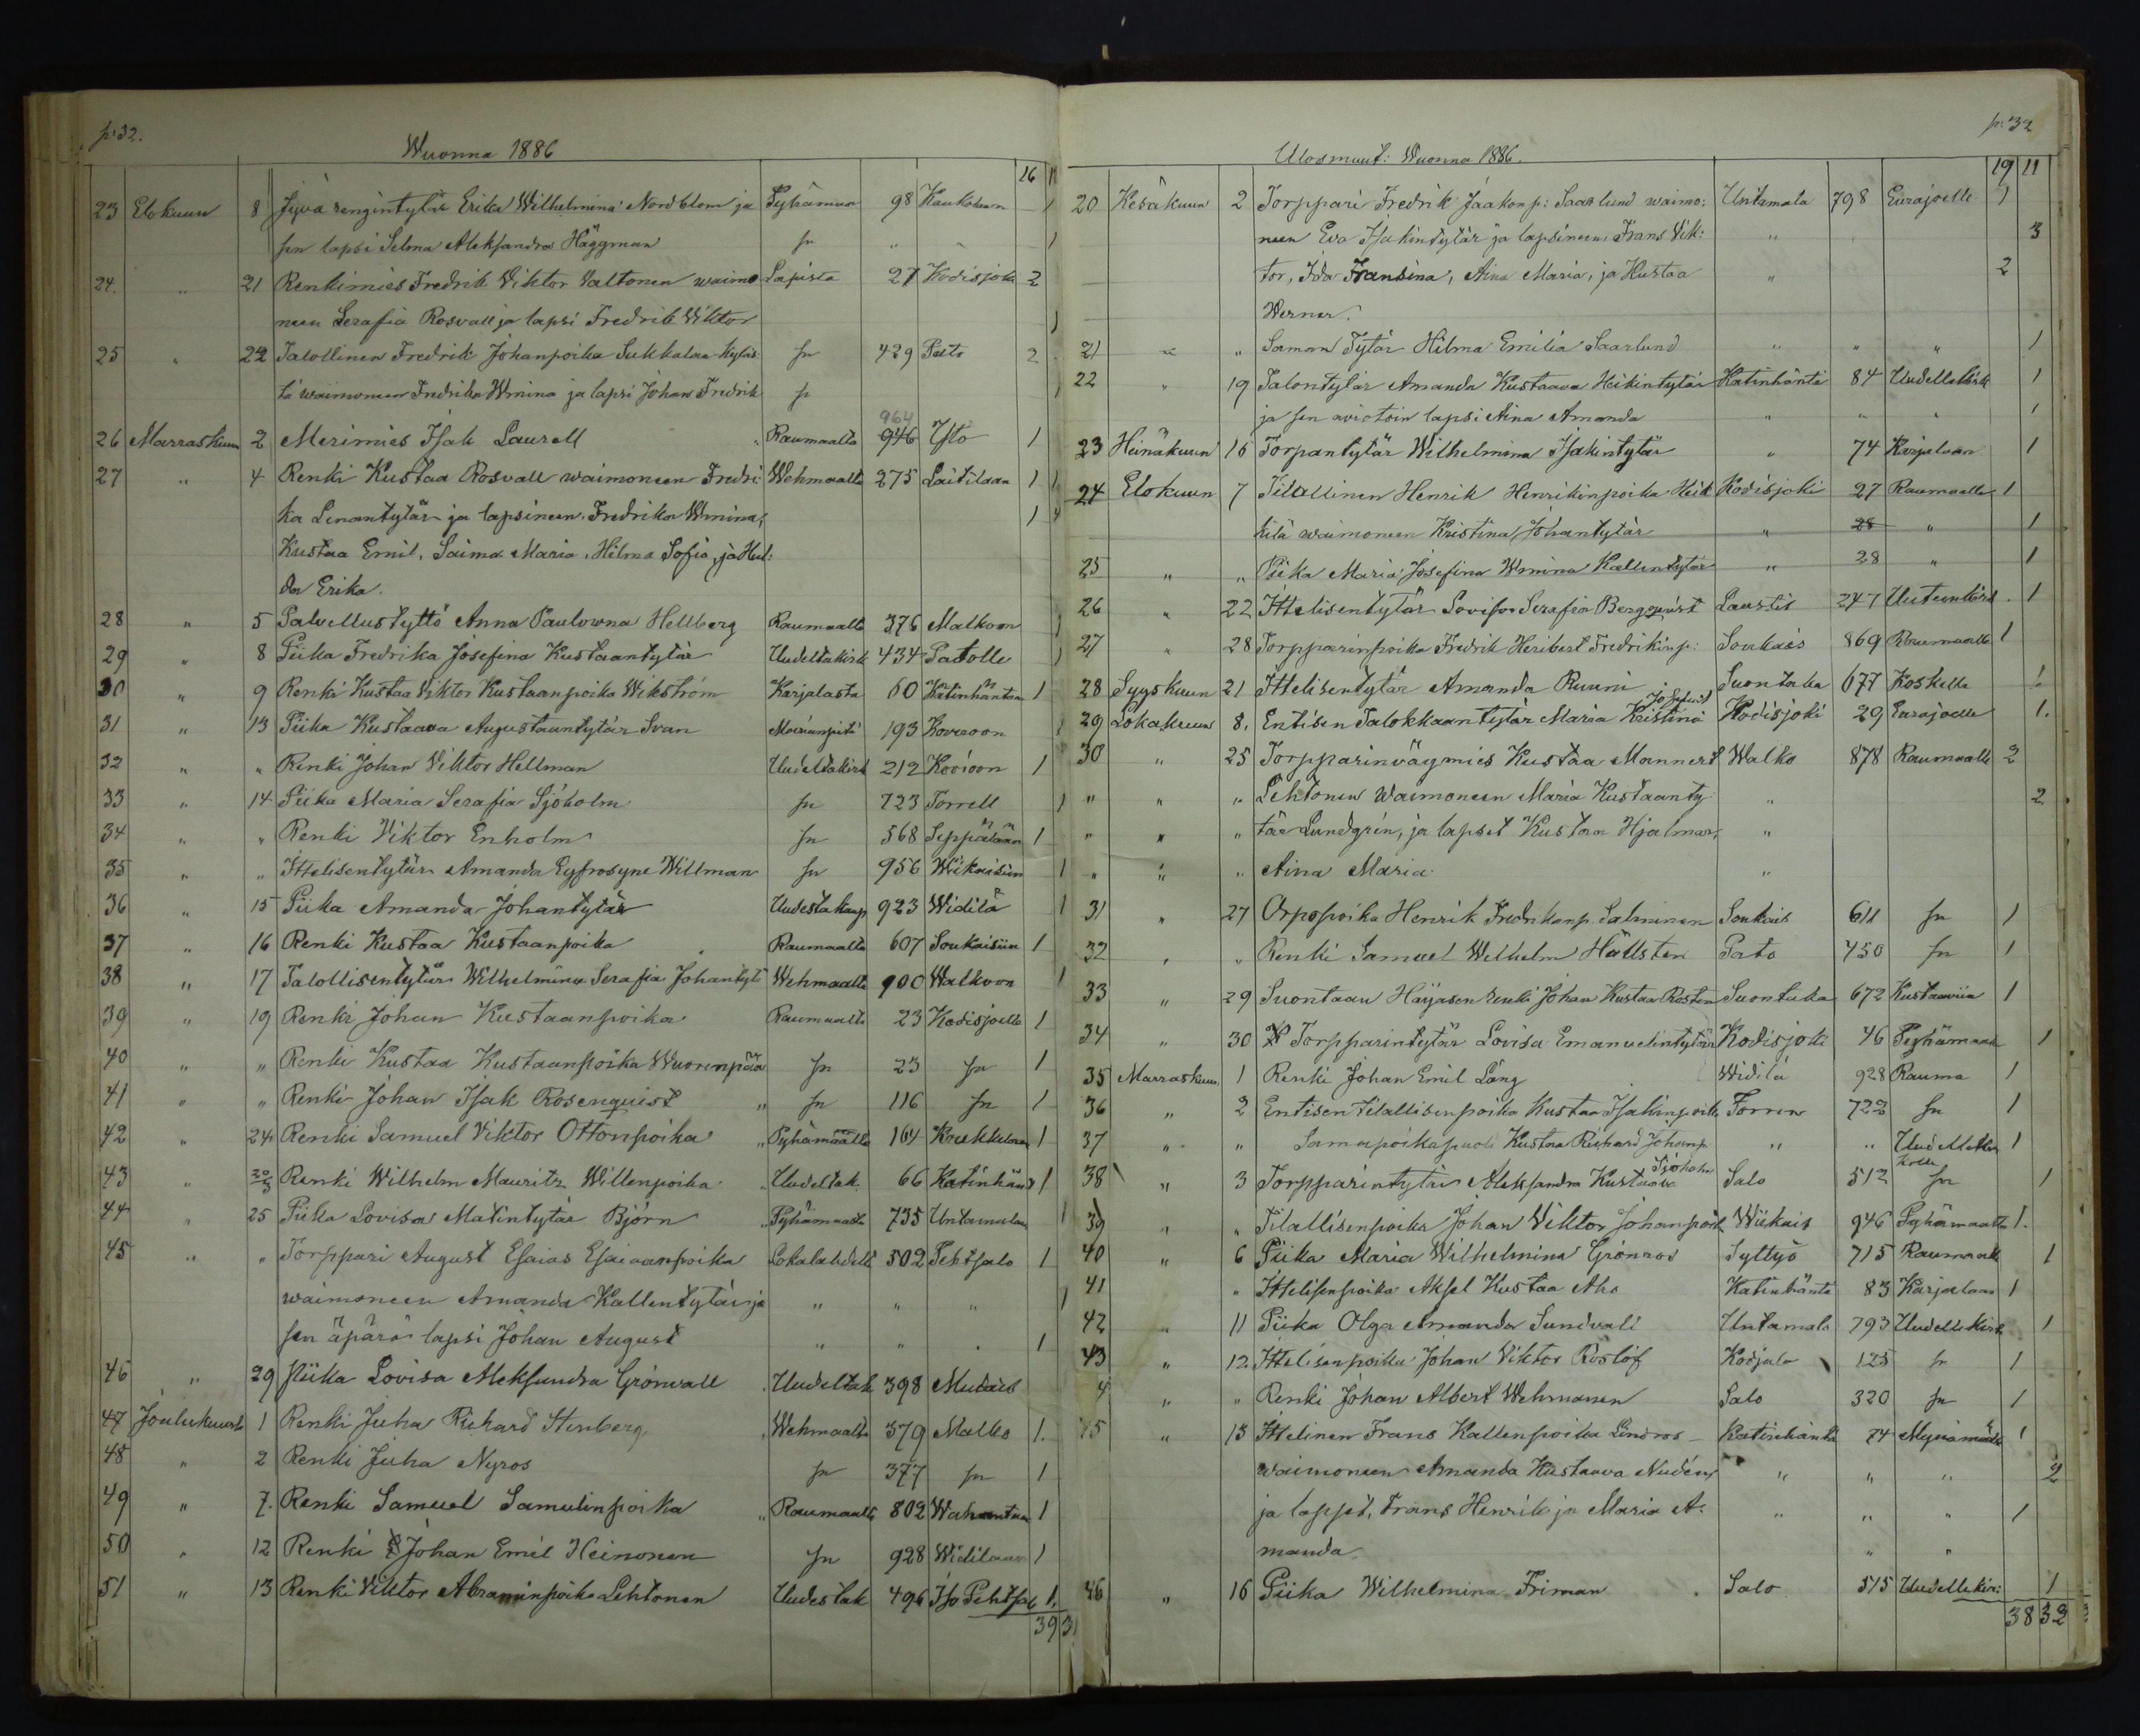 p: 32.
Wuonna 1886
16
23 Elokuun 8 Jyvä rengintytär Erika Wilhelmina Nordblom ja Pyhämaa 98 Kaukolaan 1
sen lapsi Selma Aleksandra Häggman sn " 1
24. " 21 Renkimies Fredrik Viktor Valtonen waimo Lapista 27 Kodisjoki 2
neen Serafia Rosvall ja lapsi Fredrik Viktor 1
25 " 22 Talollinen Fredrik Johanpoika Sukkalan kyläs: sn 429 Pato 2
tä waimoneen Fredrika Wmina ja lapsi Johan Fredrik sn 1
964
26 Marraskuun 2 Merimies Isak Laurell " Raumaalta 946 Ysto 1
27 " 4 Renki Kustaa Rosvall waimoneen Fredri Wehmaalta 275 Laitilaan 1 1
ka Lenantytär ja lapsineen. Fredrika Wmina, 1 4
Kustaa Emil, Saima Maria, Hilma Sofia, ja Hul:
da Erika.
28 " 5 Palvellustyttö Anna Paulowna Hellberg Raumaalta 376 Malkoon 1
29 " 8 Piika Fredrika Josefina Kustaantytär Uudeltakirk 434 Patolle 1
30 " 9 Renki Kustaa Viktor Kustaanpoika Wikström Karjalasta 60 Katinhäntaan 1
31 " 13 Piika Kustaava Augustaantytär Svan 193 Koveroon 1
32 " " Renki Johan Viktor Hellman Uudeltakirk 212 Kovioon 1
33 " 14 Piika Maria Serafia Sjöholm sn 723 Torrell 1
34 " " Renki Viktor Enholm sn 568 Seppälään 1
35 " " Ittelisentytär Amanda Eyfrosyne Willman sn 956 Wiikaisiin 1
36 " 15 Piika Amanda Johantytär Uudestakaup 923 Widilä 1
37 " 16 Renki Kustaa Kustaanpoika Raumaalta 607 Soukaisiin 1
38 " 17 Talollisentytär Wilhelmina Serafia Johantyt Wehmaalta 900 Walkoon 1
39 " 19 Renki Johan Kustaanpoika Raumaalta 23 Kodisjoelle 1
40 " " Renki Kustaa Kustaanpoika Wuorenpää sn 23 sn 1
41 " " Renki Johan Isak Rosenquist " sn 116 sn 1
42 " 24 Renki Samuel Viktor Ottonpoika " Pyhämaalta 164 Kaukkolaan 1
43 " Renki Wilhelm Mauritz Willenpoika Uudeltak 66 Katinhänt 1
44 " 25 Piika Lovisa Matintytär Björn " Pyhämaasta 735 Untamalaan 1
45 " " Torppari August Esaias Esaiaanpoika Lokalahdelta 502 Pehtsalo 1
waimoneen Amanda Kallentytär ja " " " 1
sen äpärä lapsi Johan August " " " 1
46 " 29 Piika Lovisa Aleksandra Grönvall Uudeltak 398 Mudais
47 Joulukuusta 1 Renki Juha Richard Stenberg Wehmaalta 379 Malko 1.
48 " 2 Renki Juha Nyros sn 377 sn 1
49 " 7. Renki Samuel Samulinpoika " Raumaalta 802 Wahantaan 1
50 " 12 Renki Johan Emil Heinonen sn 928 Widilaan 1
51 " 13 Renki Viktor Abraminpoika Lehtonen Uudestak 496 Iso Pehtsal 1.
39 31
p: 32
Ulosmuut: Wuonna 1886.
19 11
20 Kesäkuun 2 Torppari Fredrik Jaakonp: Saarlund waimo: Untamala 798 Eurajoelle 1
neen Eva Isakintytär ja lapsineen, Frans Vik: " 3
tor, Ida Fransina, Aina Maria, ja Kustaa " 2
Werner.
21 " " Saman Tytär Hilma Emilia Saarlund " " " 1
22 " 19 Talontytär Amanda Kustaava Heikintytär Katinhäntä 84 Uudellekirk 1
ja sen aviotoin lapsi Aina Amanda " " " 1
23 Heinäkuun 16 Torpantytär Wilhelmina Isakintytär " 74 Karjalaan 1
24 Elokuun 7 Tilallinen Henrik Henrikinpoika Heik Kodisjoki 27 Raumaalle 1
kilä waimoneen Kristina Johantytär " 28 " 1
25 " " Piika Maria Josefina Wmina Kallentytär " 28 " 1
26 " 22 Ittelisentytär Lovisa Serafia Bergqvist Laustis 247 Uuteenkirk 1
27 " 28 Torpparinpoika Fredrik Heribert Fredrikinp: Soukais 869 Raumaalle 1
28 Syyskuun 21 Ittelisentytär Amanda Ruuni Suontaka 677 Koskelle 1
29 Lokakuun 8. Entisen Talokkaantytär Maria Kristina Kodisjoki 29 Eurajoelle 1.
30 " 25 Torpparinväymies Kustaa Mannert Walko 878 Raumaalle 2
" " " Lehtonen waimoneen Maria Kustaanty: " 2
" " " tär Lundgrén, ja lapset Kustaa Hjalmar, "
" " " Aina Maria "
31 " 27 Orpopoika Henrik Fredrikinp. Salminen Soukais 611 sn 1
32 " " Renki Samuel Wilhelm Hällsten Pato 450 sn 1
33 " 29 Suontaan Häyäsen renki Johan Kustaa Rosten Suontaka 672 Kustaaviin 1
34 " 30 Torpparintytär Lovisa Emanuelintytär Kodisjoki 46 Pyhämaalle 1
35 Marraskuu 1 Renki Johan Emil Lång Widilä 928 Rauma 1
36 " 2 Entisen tilallisenpoika Kustaa Isakinpoika Torren 722 sn 1
37 " " Samapoikapuoli Kustaa Richard Johanp " " Uudellekir 1
kolle
Sjöholm
38 " 3 Torpparintytär Aleksandra Kustaava Salo 512 sn 1
39 " " Tilallisenpoika Johan Viktor Johanpoik Wiikais 946 Pyhämaalle 1.
40 " 6 Piika Maria Wilhelmina Grönroos Syttyö 715 Raumaalle 1
41 " Ittelisenpoika Aksel Kustaa Aho Katinhäntä 83 Karjalaan 1
42 " 11 Piika Olga Amanda Sundvall Untamala 793 Uudellekirk 1
43 " 12. Ittelisenpoika Johan Viktor Roslöf Kodjala 125 sn 1
4 " " Renki Johan Albert Wehmanen Salo 320 sn 1
45 " 13 Ittelinen Frans Kallenpoika Lindros Katinhäntä 74 Mynämäelle 1
waimoneen Amanda Kustaava Nudén, " " " 2
ja lapset, Frans Henrik ja Maria A: " " " 1
manda " "
46 " 16 Piika Wilhelmina Friman Salo 515 Uudellekir: 1
38 32